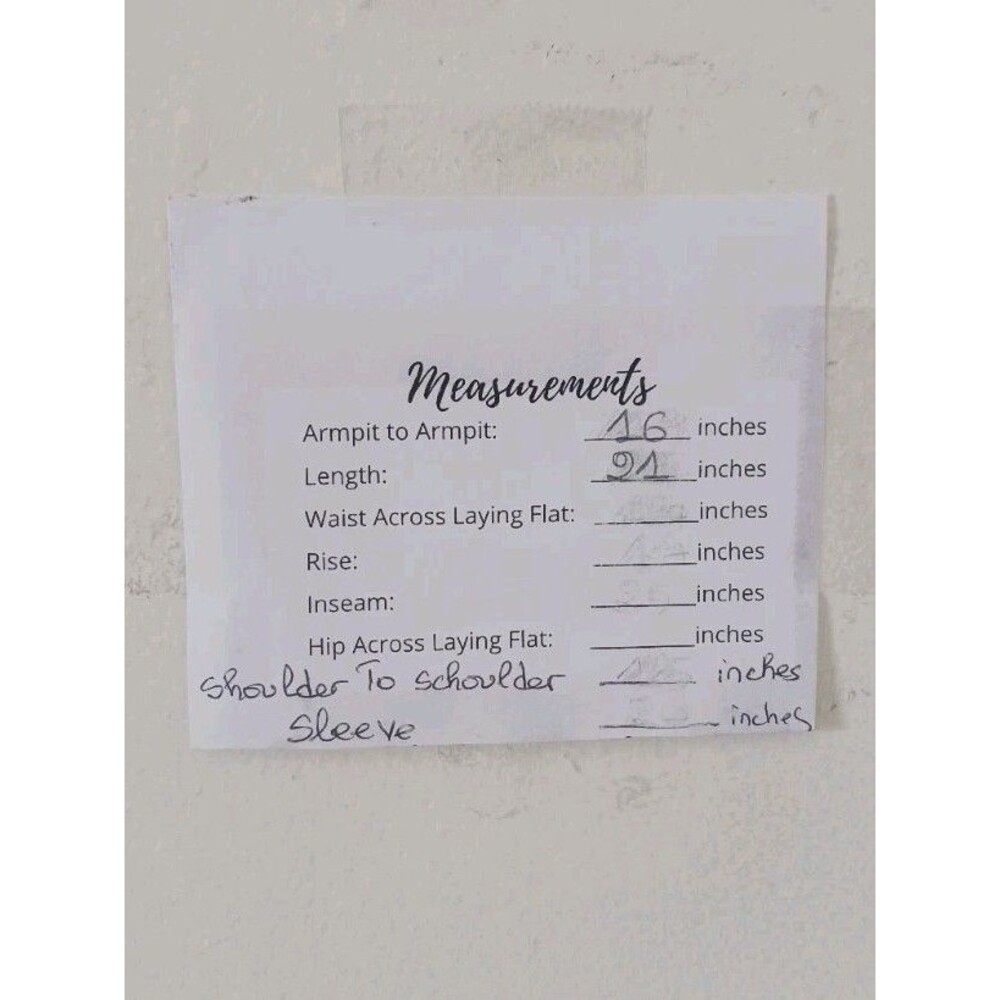 Measurements
Armpit to Armpit: 16 inches
Length: 21 inches
Waist Across Laying Flat: inches
Rise: inches
Inseam: inches
Hip Across Laying Flat: inches
Shoulder To schoulder inches
Sleeve inches